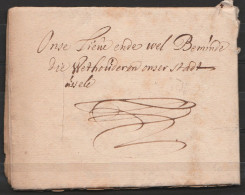 Onse Lieve ende wel Beminde
die Wethouderen onser stadt